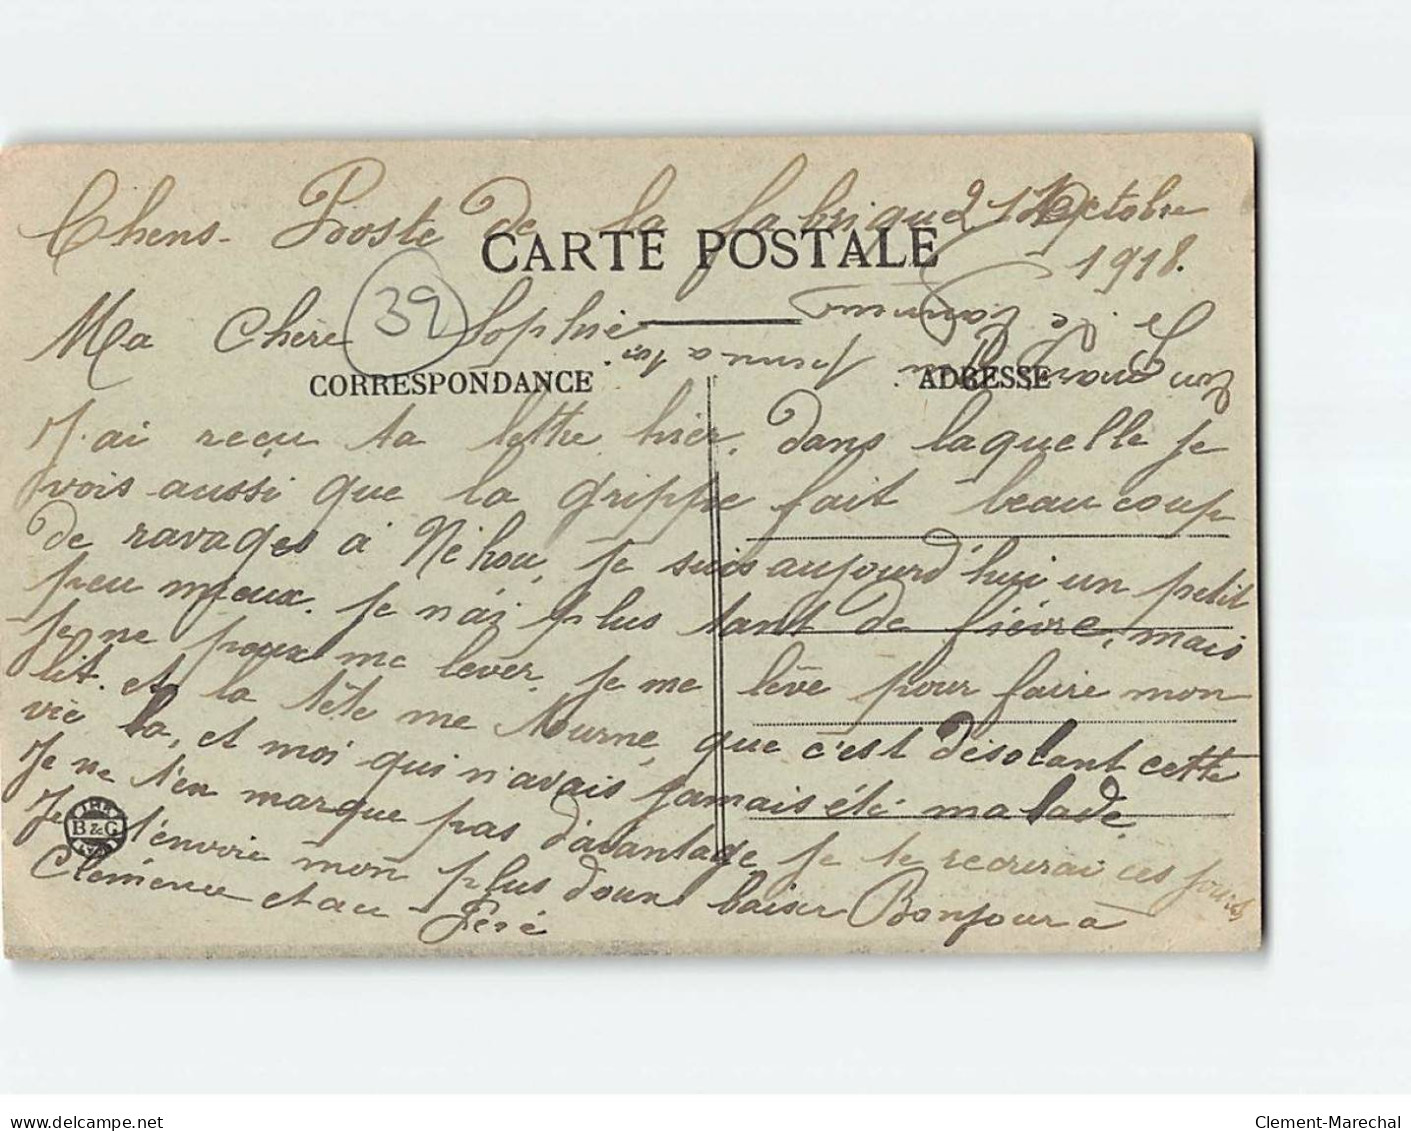 Chens. Poste de la fabrique 21 Octobre
1918.
CARTE POSTALE
39
Ma Chère Sophie
Ton mari
CORRESPONDANCE
ADRESSE
J'ai reçu ta lettre hier, dans laquelle je
vois aussi que la grippe fait beaucoup
de ravages à Néhou, je suis aujourd'hui un petit
peu mieux. je n'ai plus tant de fièvre, mais
je ne peux me lever. je me lève pour faire mon
lit. et la tête me tourne, que c'est désolant cette
vie la, et moi qui n'avais jamais été malade,
Je ne t'en marque pas davantage je te recrirai ces jours
Je t'envoie mon plus doux baiser Bonjour a
Clémence et au Peré
B & G
delcampe.net
Clement-Marechal